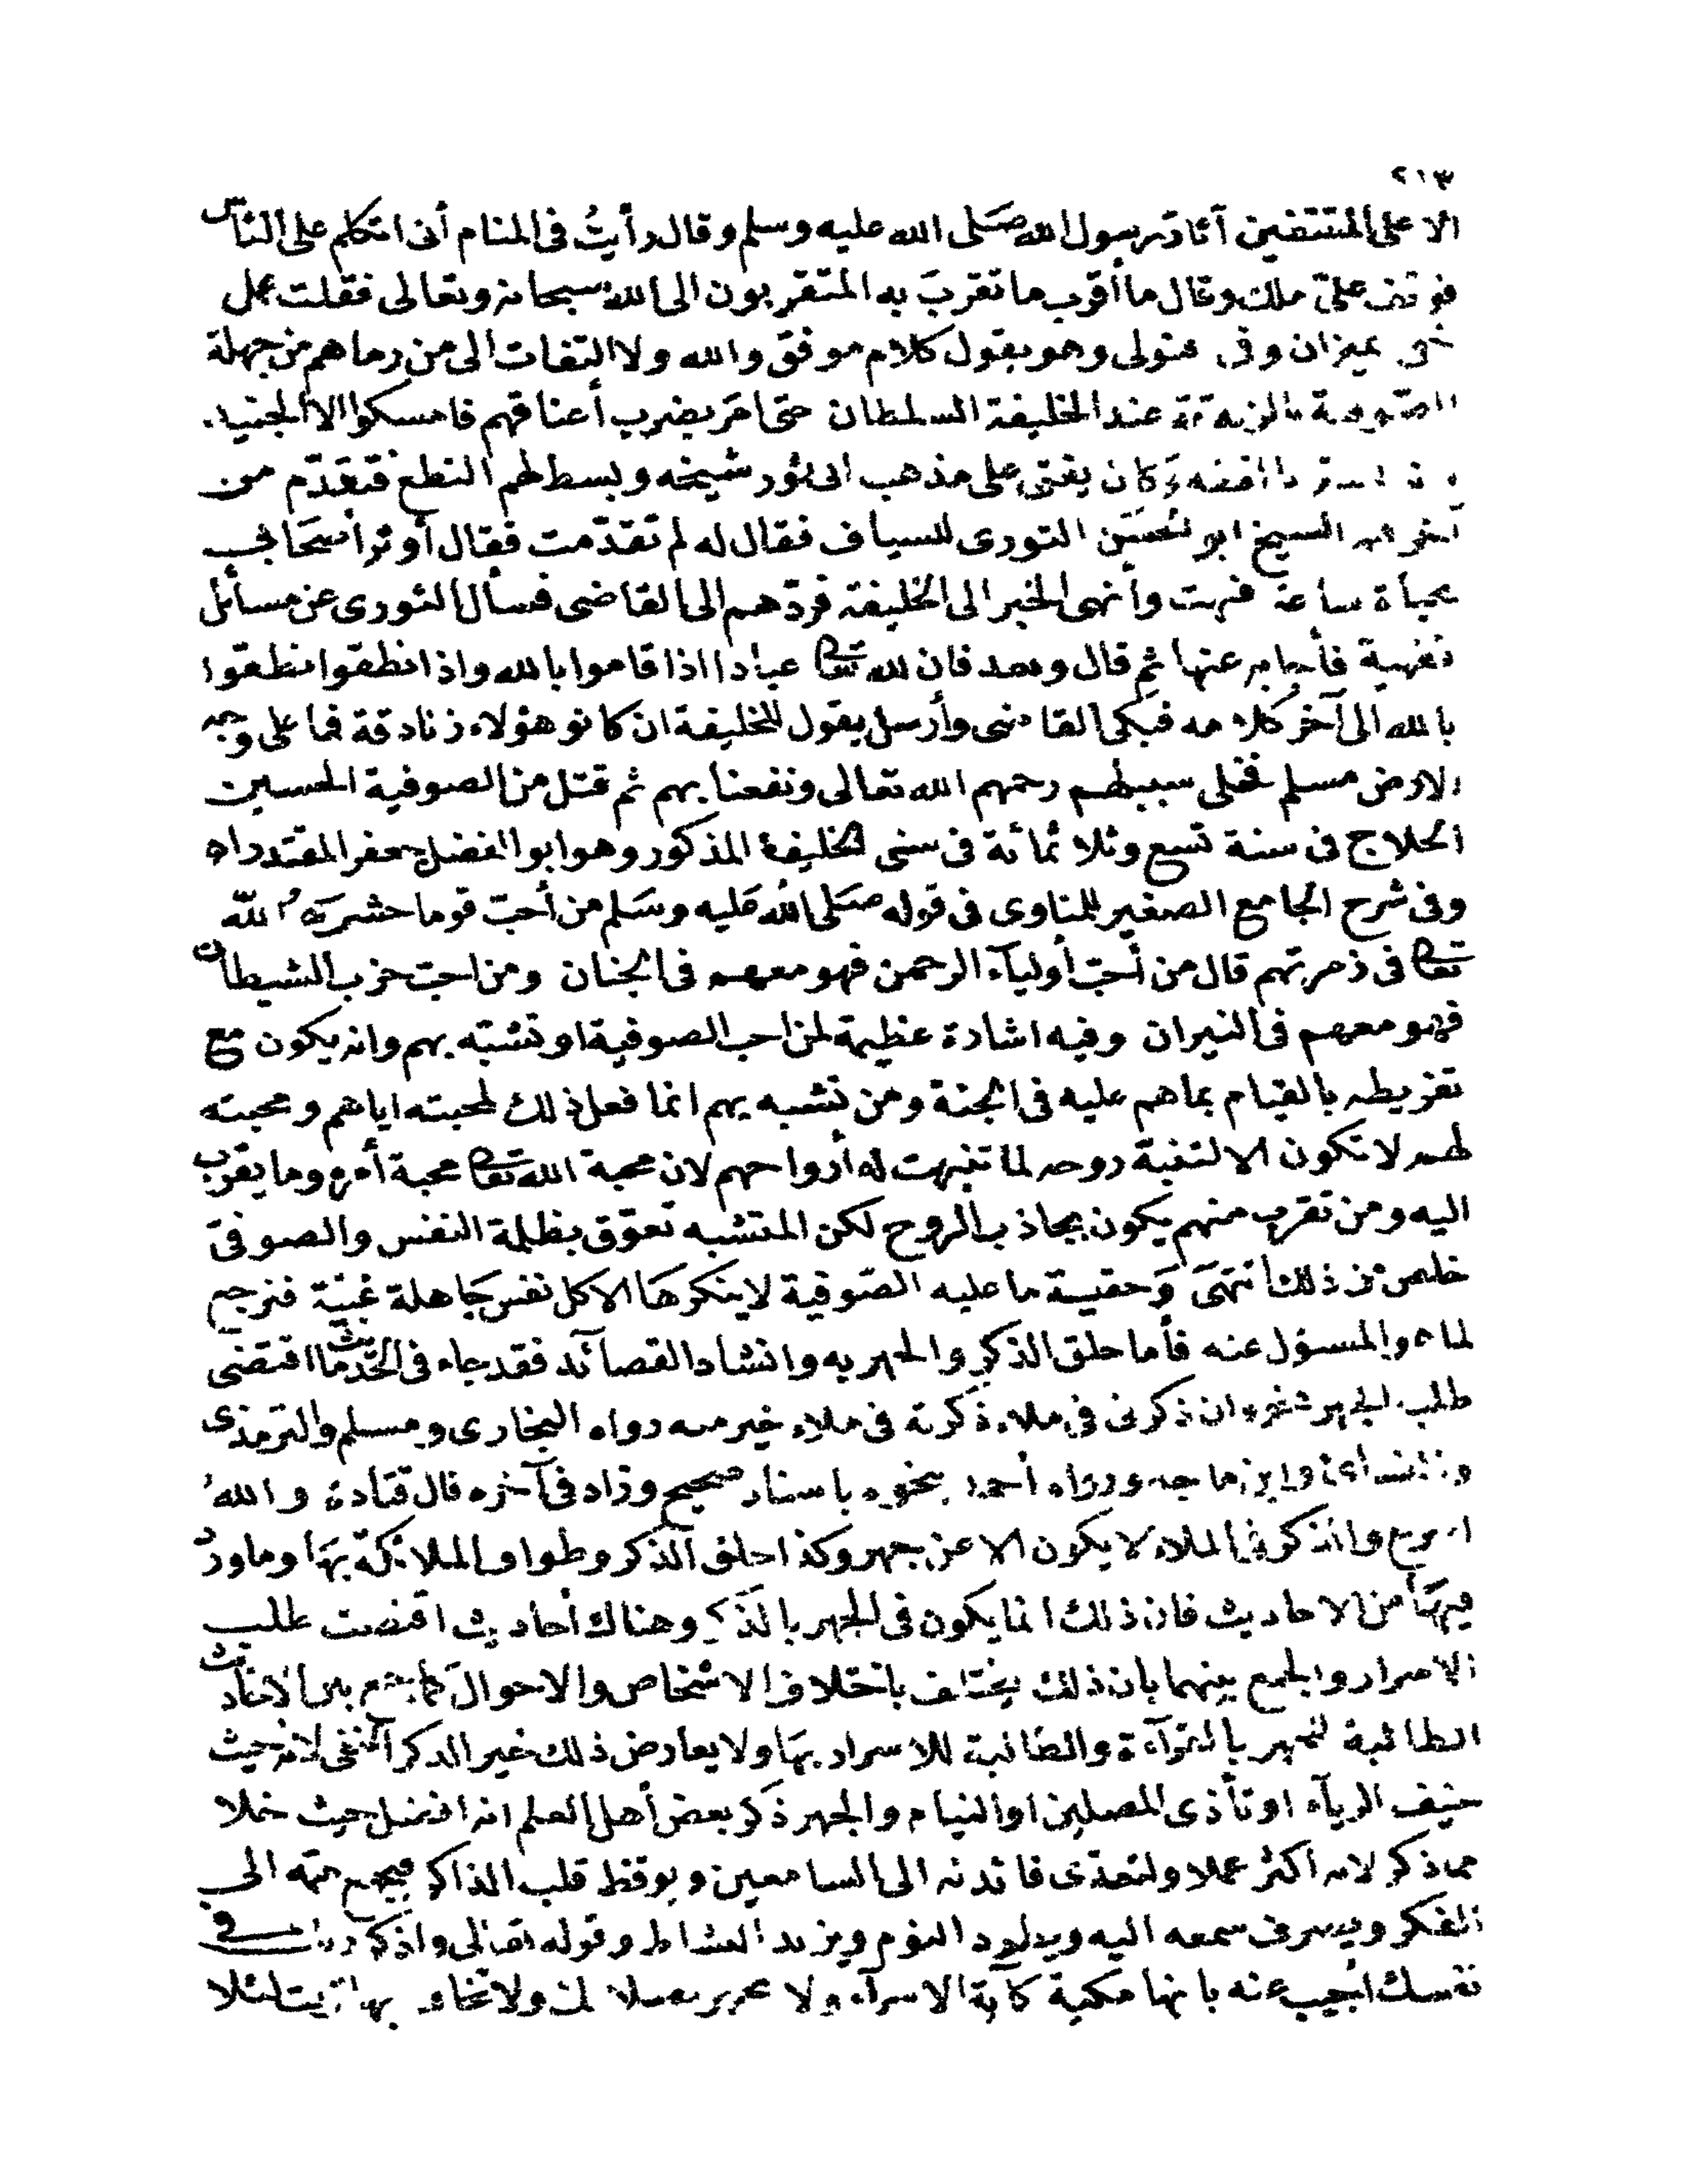 ٢١٣
الا على المقتفين آثار رسول الله صلى الله عليه وسلم وقال رأيتُ فى المنام أنى اتكلم على الناس
فوقف علىّ ملك وقال ما أقرب ما تقربَ به المتقربون الى الله سبحانه وتعالى فقلت عمل
خفى بميزان وفى فتولى وهو يقول كلام موفق والله ولا التفات الى من رماهم من جهلة
المتصوفة بالزندقة عند الخليفة السلطان حتى امَر بضرب أعناقهم فامسكوا الا الجنيد
فانه تستر بالفقه وَكان يفتى على مذهب ابى ثور شيخه وبسط لهم النطع فتقدّم من
آخرهم الشيخ ابو الحسَين النورى للسياف فقال له لم تقدّمت فقال أوثر أصحَابى
بحياة ساعة فبهت وأنهى الخبر الى الخليفة فردّهم الى القاضى فسأل النورى عن مسائل
فقهية فأجابه عنها ثم قال وبعد فان لله تعالى عبادا اذا قاموا بالله واذا نطقوا نطقوا
بالله الى آخر كلامه فبكى القاضى وأرسل يقول للخليفة ان كانو هؤلاء زنادقة فما على وجه
الارض مسلم فخلى سبيلهم رحمهم الله تعالى ونفعنا بهم ثم قتل من الصوفية الحسين
الحلاج فى سنة تسع وثلاثمائة فى سنى الخليفة المذكور وهو ابوا الفضل جعفر المقتدر اه
وفى شرح الجامع الصغير للمناوى فى قوله صَلى الله عَليه وسَلم من أحبّ قوما حشرَه الله
تعالى فى زمرتهم قال من أحبّ أوليآء الرحمن فهو معهم فى الجنان ومن احبّ حزب الشيطان
فهو معهم فى النيران وفيه اشارة عظيمة لمن احب الصوفية او تشبّه بهم وانه يكون مع
تفريطه بالقيام بماهم عليه فى الجنة ومن تشبه بهم انما فعل ذلك لمحبته اياهم ومحبته
لهم لا تكون الا لتنبّه روحه لما تنبهت له أرواحهم لان محبة الله تعالى محبة أمره وما يقرب
اليه ومن تقرب منهم يكون بجاذب الروح لكن المتشبه تعوّق بظلمة النفس والصوفىّ
خلص من ذلك انتهىَ وَحقيقة ما عليه الصّوفية لا ينكرهَا الا كل نفس جَاهلة غبيّة فنرجع
لما هو المسؤل عنه فأما حلق الذكر والجهر به وانشاد القصآئد فقد جاء فى الحَديث ما اقتضى
طلب الجهر نحو وان ذكرنى فى ملاء ذكرته فى ملاء خير منه رواه البخارى ومسلم والترمذى
والنسائ وابن ماجه ورواه أحمد بنحوه باسناد صحيح وزاد فى آخره قال قتادة والله
اسرع والذكر فى الملاء لا يكون الا عن جهر وكذا حلق الذكر وطواف الملائكة بهَا وما ورد
فيهَا من الاحاديث فان ذلك انما يكون فى الجهر بالذكر وهناك أحاديث اقتضت طلب
الاسرار والجمع بينهما بان ذلك يختلف باختلاف الاشخاص والاحوال كما جمع بين الاحاديث
الطالبة للجهر بالقرآءة والطالبة للاسرار بهَا ولا يعارض ذلك خير الذكر الخفى لانه حيث
خيف الريآء او تأذى المصلين او النيام والجهر ذكر بعض أهل العلم انه افضل حيث خلا
مما ذكر لانه أكثر عملا ولتعدّى فائدته الى السامعين ويوقظ قلب الذاكر فيجمع همّه الى
الفكر ويصرف سمعه اليه ويطرد النوم ويزيد النشاط وقوله تعالى واذكر ربك فى
نفسك أجيب عنه بانها مكية كآية الاسرآء ولا تجهر بصلاتك ولا تخافت بها نزلت لئلا